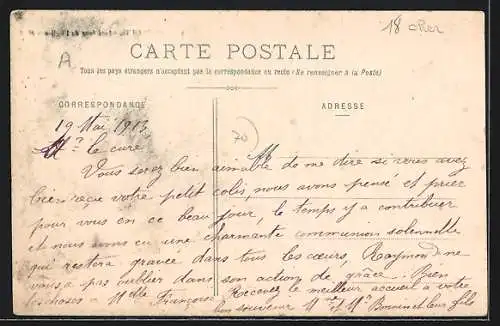 18 cher
A
CARTE POSTALE
Tous les pays étrangers n'acceptent pas la correspondance au recto (Se renseigner à la Poste)
CORRESPONDANCE
ADRESSE
19 Mai 1913
70
Mr le curé
Vous serez bien aimable de me dire si vous avez
bien reçue votre petit colis, nous avons pensé et priée
pour vous en ce beau jour, le temps y a contribuer
et nous avons eu une charmante communion solennelle
qui restera gravée dans tous les cœurs, Raymond ne
vous a pas oublier dans son action de grâce. Bien
des choses à Melle Françoise Recevez le meilleur accueil à votre
bon souvenir Mr et Me et leur fils